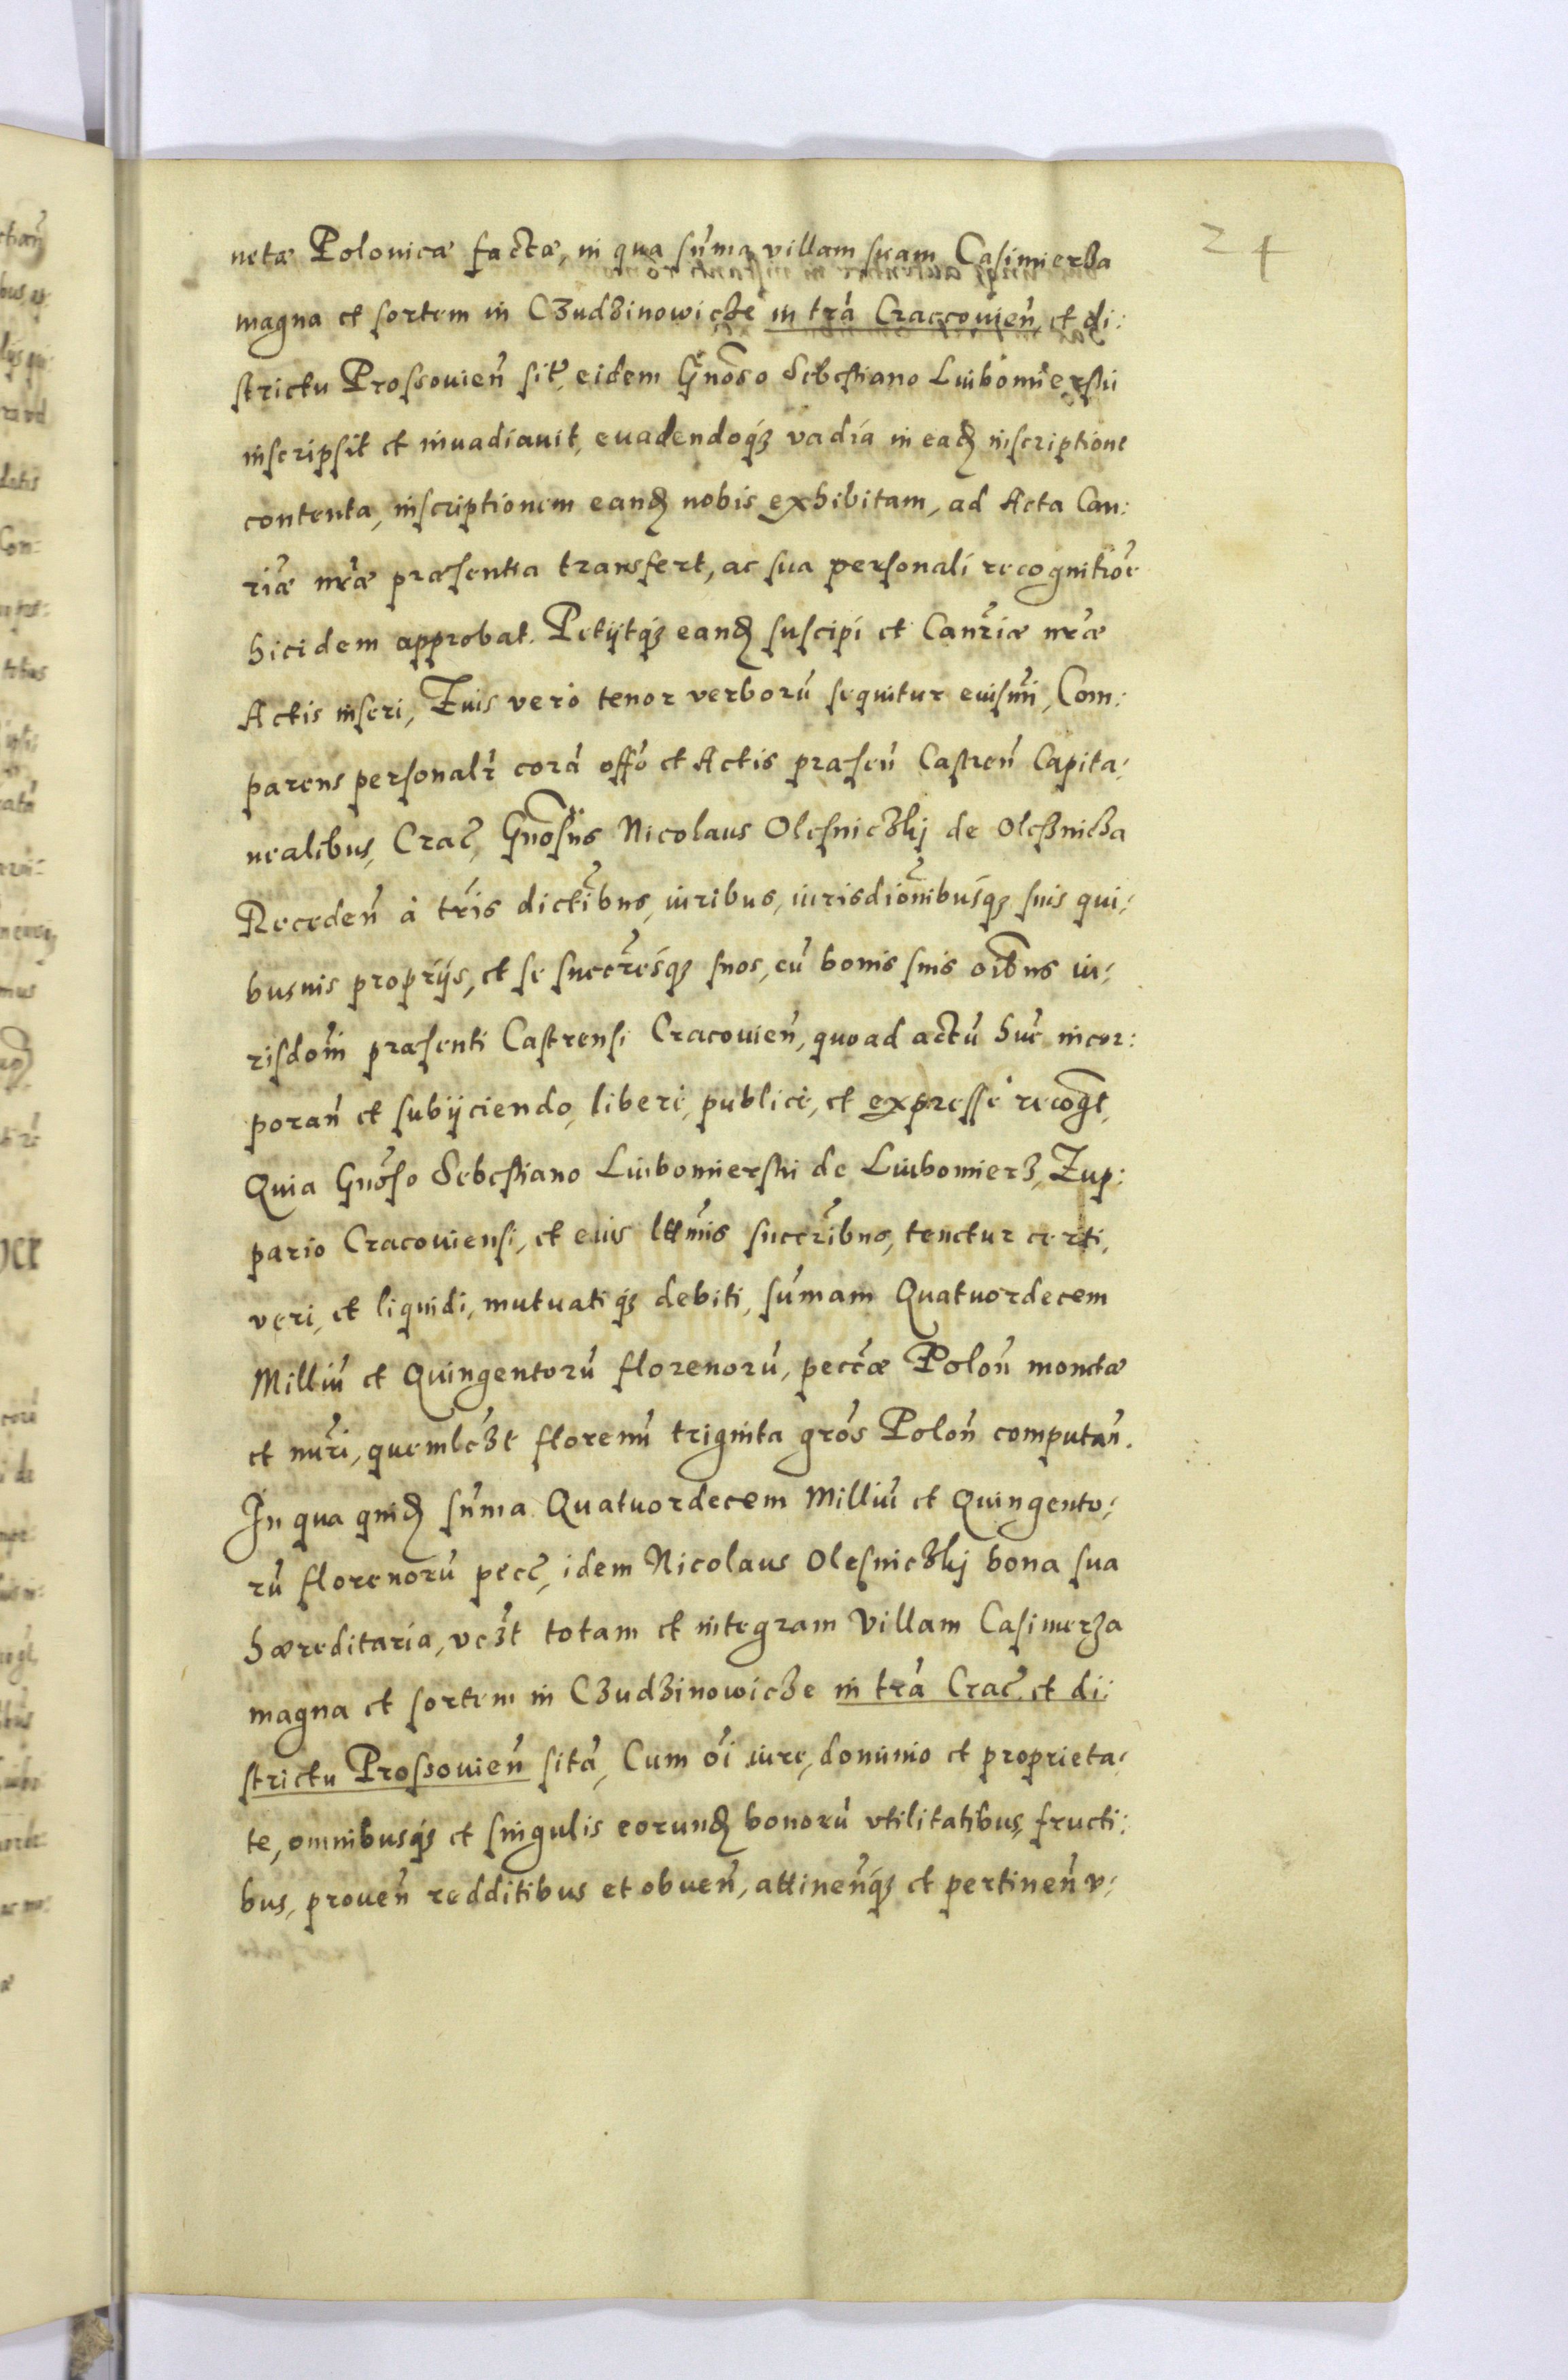 24
netæ Polonicæ factæ, in qua sum̃a villam suam Casimierza
magna et sortem in Czudzinowicze in tra͂ Craccovien͂, et di:
strictu Prossovien͂ sit͂, eidem Gn͂oso Sebestiano Lubomierski
inscripsit et invadiavit, evadendoq3 vadia in ead͂ inscriptione
contenta, inscriptionem eand͂ nobis exhibitam, ad Acta Can:
riæ nr͂æ præsentia transfert, ac sua personali recognitio͂e
hicidem approbat. Petÿtq3 eand͂ suscipi et Can͂riæ nr͂æ
Actis inseri, Euis vero tenor verboru͂ sequitur euism͂i, Com:
parens personalr͂ cora͂ off͂o et Actis præsen͂ Castren͂ Capita:
nealibus, Crac͂, Gn͂osus Nicolaus Olesniczkj de Olesznicza
Receden͂ à tr͂is dict͂ibus, iuribus, iurisdio͂nibusq3 suis qui:
busuis proprÿs, et se succr͂esq3 suos, cu͂ bonis suis oi͂bus iu:
risdo͂ni præsenti Castrensi Cracovien͂, quoad actu͂ hu͂c incor:
poran͂ et subÿciendo, liberè, publicè, et expressè recog͂t,
Quia Gn͂oso Sebestiano Lubomierski de Lubomierz, Zup:
pario Cracoviensi, et eius ltt͂mis succr͂ibus, tenetur certi,
veri, et liquidi, mutuatiq3 debiti, sum͂am Quatuordecem
Milliu͂ et Quingentoru͂ florenoru͂, pecc͂æ Polon͂ monetæ
et nu͂ri, quemlc͂3t florenu͂ triginta gro͂s Polon͂ computan͂.
In qua quid͂ sum͂a Quatuordecem Milliu͂ et Quingento:
ru͂ florenoru͂ pecc͂, idem Nicolaus Olesniczkj bona sua
hæreditaria, vc͂3t totam et integram Villam Casimerza
magna et sortem in Czudzinowicze in tra͂ Crac͂ et di:
strictu Prossovien͂ sita͂, Cum o͂i iure, dominio et proprieta:
te, omnibusq3 et singulis eorund͂ bonoru͂ vtilitatibus, fructi:
bus, proven͂ redditibus et obven͂, attinen͂q3 et pertinen͂ v: